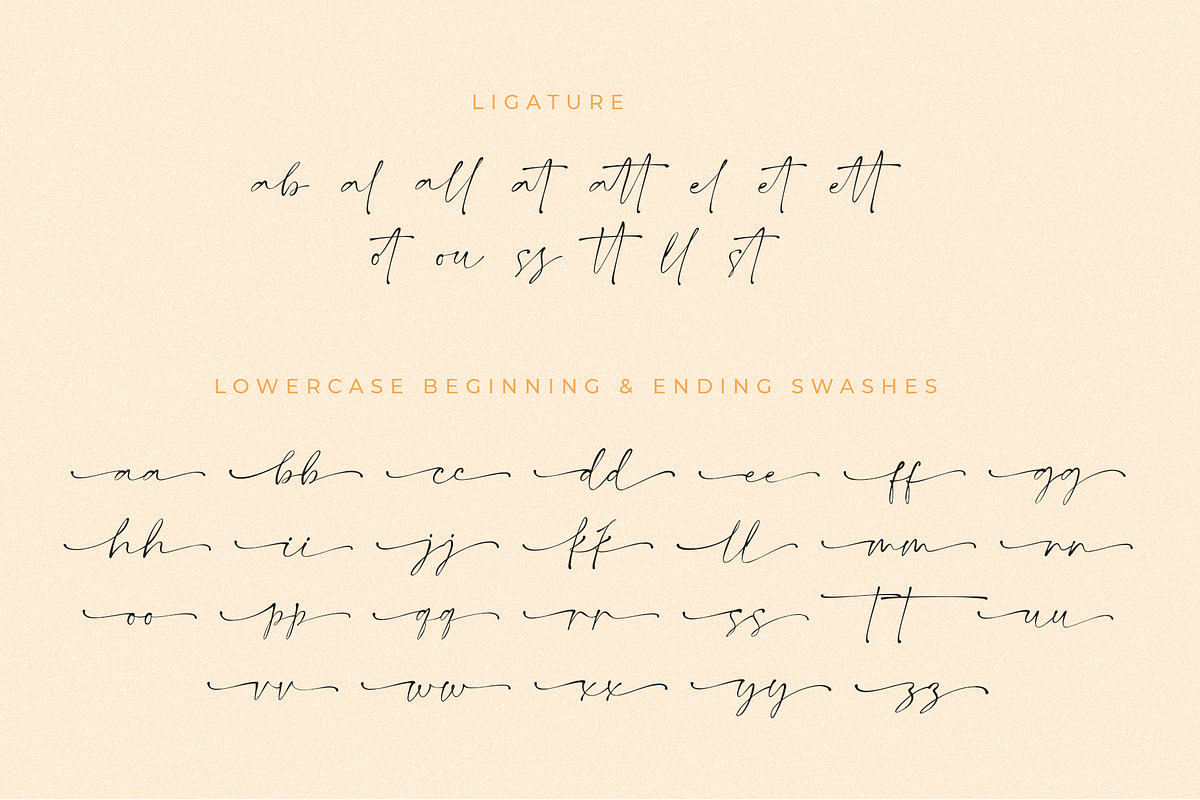 LIGATURE
ab al all at att el et ett
ot ou ss tt ll st
LOWERCASE BEGINNING & ENDING SWASHES
aa bb cc dd ee ff gg
hh ii jj kk ll mm nn
oo pp qq rr ss tt uu
vv ww xx yy zz